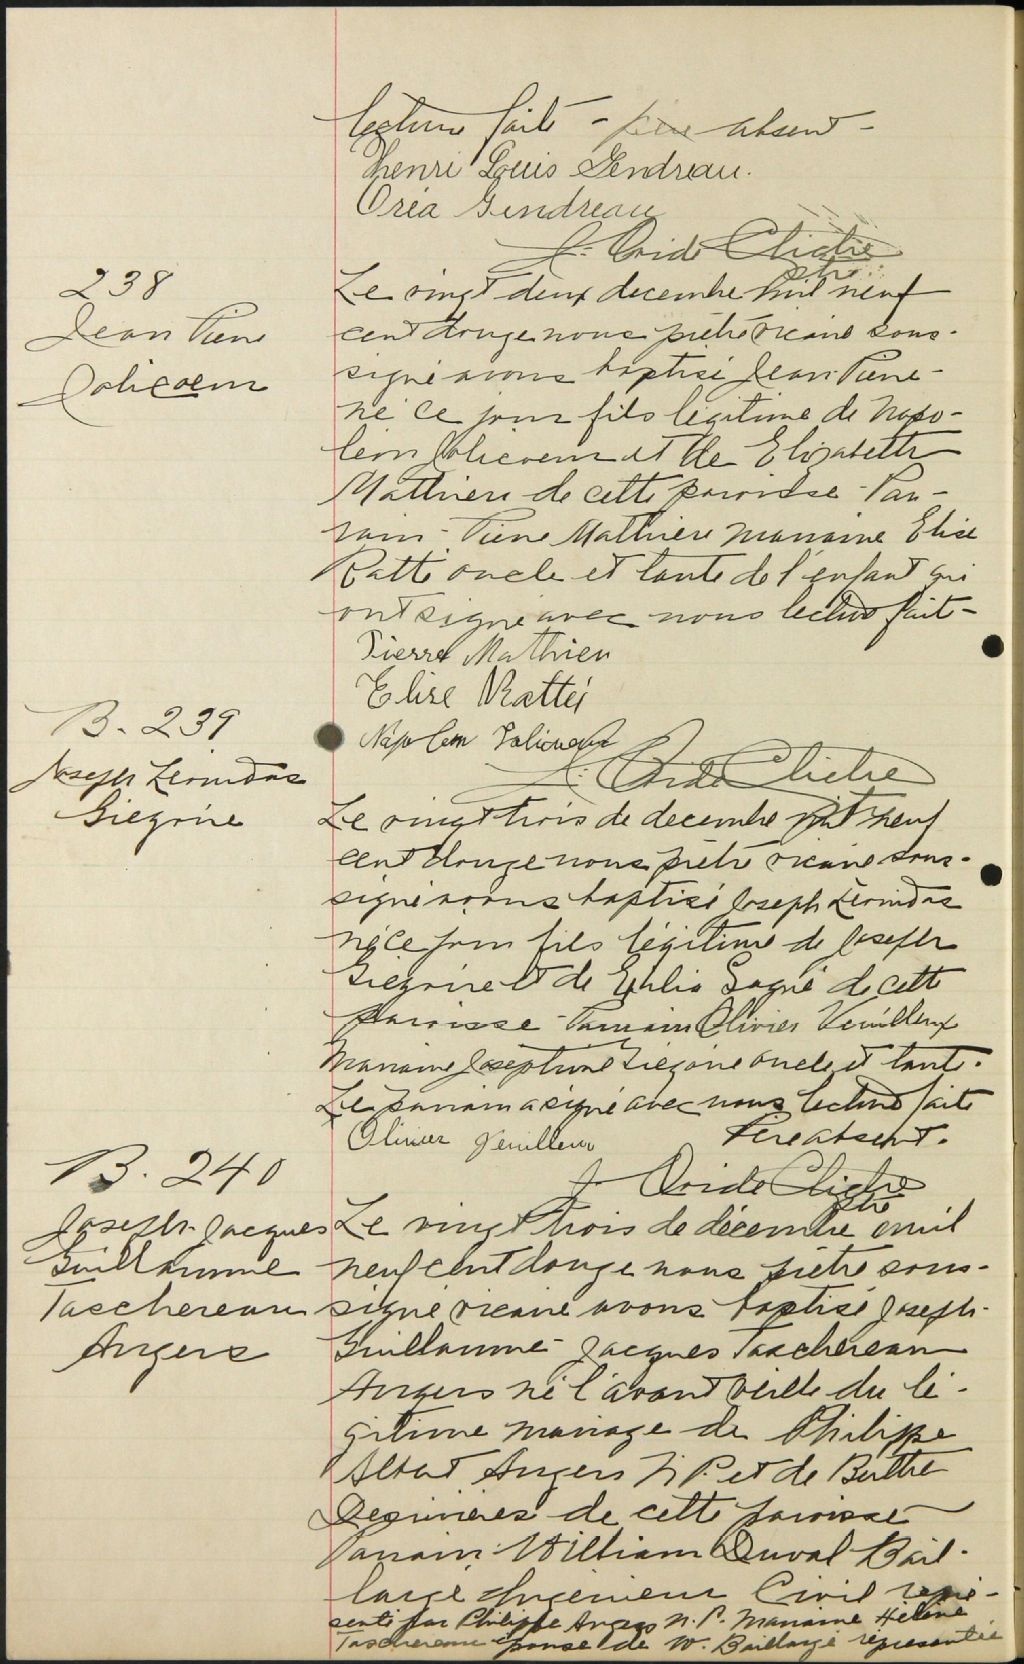 lecture faite - père absent -
Henri Louis Gendreau.
Oréa Gendreau
J. Ovide Cliche
ptre
238
Jean Pierre
Jolicoeur
Le vingt deux decembre mil neuf
cent douze nous prêtre vicaire sous-
signé avons baptisé Jean Pierre -
né ce jour fils légitime de Napo-
léon Jolicoeur et de Elizabeth
Mathieu de cette paroisse - Par-
rain - Pierre Mathieu marraine Elise
Ratté oncle et tante de l'enfant qui
ont signé avec nous lecture faite -
Pierre Mathieu
Elise Rattéi
Napoleon Jolicoeur
J. Ovide Cliche
B. 239
Joseph Léonidas
Giegoire
Le vingt trois de decembre mil neuf
cent douze nous prêtre vicaire sous-
signé avons baptisé Joseph Léonidas
né ce jour fils légitime de Joseph
Giegoire et de Eulia Gagné de cette
paroisse - Parrain Olivier Veuilleux
Marraine Josephine Giegoire oncle et tante.
Le parrain a signé avec nous lecture faite
Père absent.
Olivier Veuilleux
J. Ovide Cliche
ptre
B. 240
Joseph-Jacques
Guillaume
Taschereau
Angers
Le vingt trois de décembre mil
neuf cent douze nous prêtre sous-
signé vicaire avons baptisé Joseph-
Guillaume - Jacques Taschereau
Angers né l'avant veille du lé-
gitime mariage de Philippe
Albert Angers N. P. et de Berthe
Desrivières de cette paroisse
Parrain William Duval Bail-
largé Ingénieur Civil repré-
senté par Philippe Angers N. P. Marraine Hélène
Taschereau épouse de W. Baillargé représentée